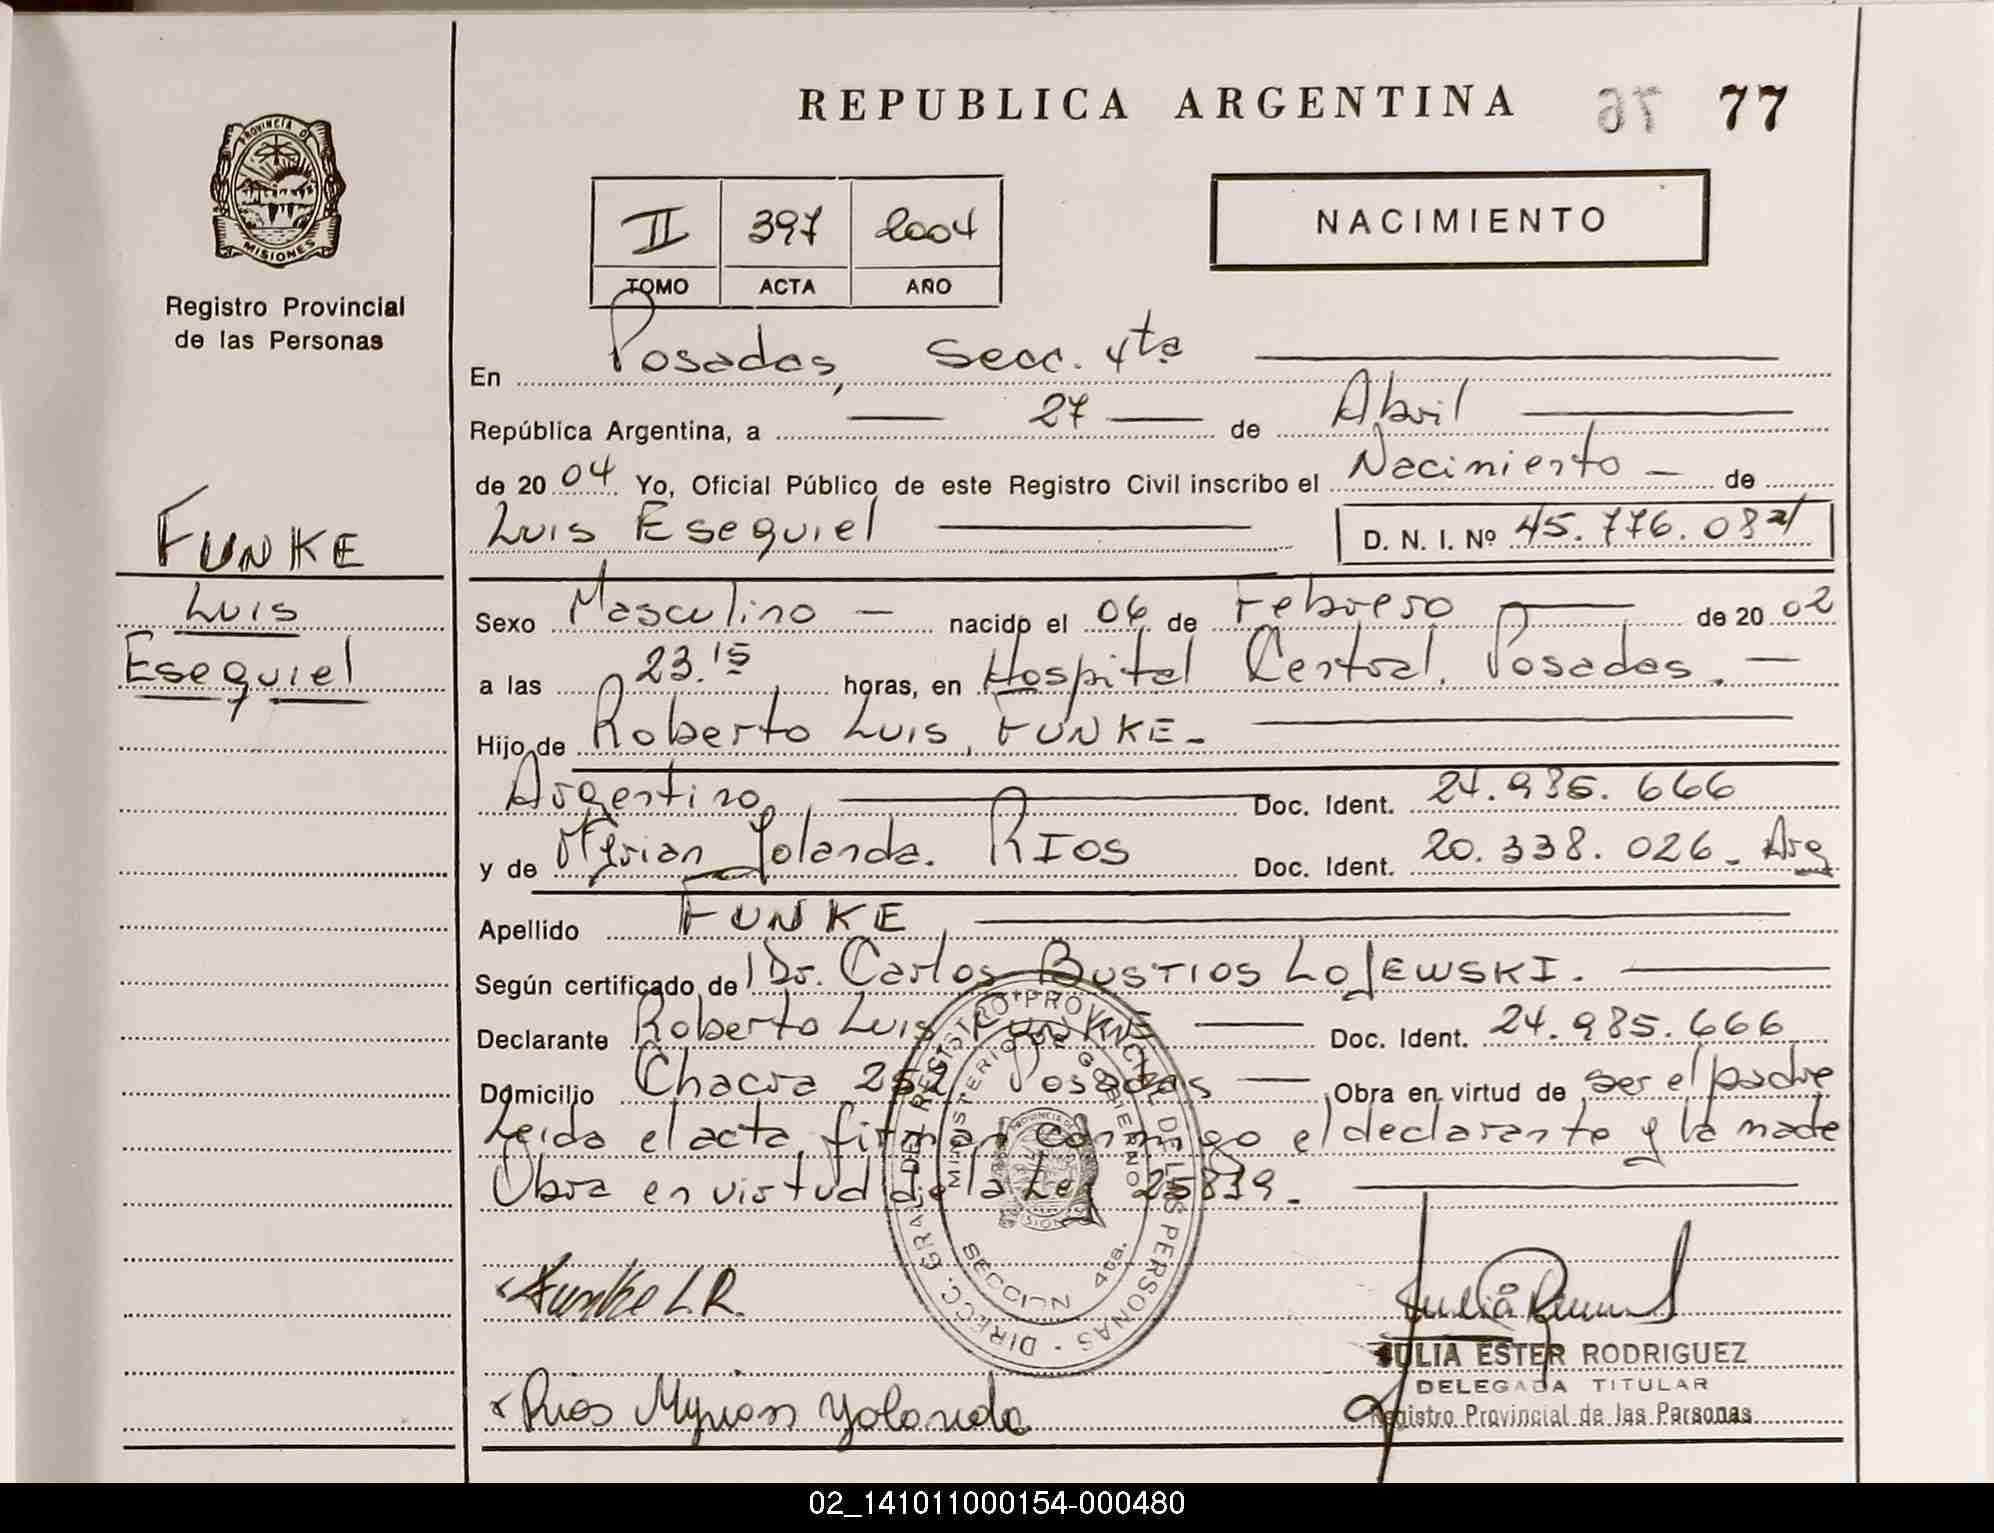 REPUBLICA ARGENTINA 76 77
PROVINCIA D
MISIONES
Registro Provincial
de las Personas
II 397 2004
TOMO ACTA AÑO
NACIMIENTO
En Posadas, Secc. 4ta
República Argentina, a 27 de Abril
de 2004 Yo, Oficial Público de este Registro Civil inscribo el Nacimiento de
Luis Esequiel D. N. I. Nº 45.776.082
FUNKE
Luis
Esequiel
Sexo Masculino nacido el 06 de Febrero de 2002
a las 23.15 horas, en Hospital Central. Posadas.
Hijo de Roberto Luis, FUNKE.
Argentino, Doc. Ident. 24.985.666
y de Myrian Yolanda. RIOS Doc. Ident. 20.338.026. Arg
Apellido FUNKE
Según certificado de Dr. Carlos BUSTIOS LOJEWSKI.
Declarante Roberto Luis FUNKE Doc. Ident. 24.985.666
Domicilio Chacra 252 Posadas Obra en virtud de ser el padre
Leida el acta, firman conmigo el declarante y la madre
Obra en virtud de la Ley 25819.
DIRECC. GRAL. DEL REGISTRO PROVINCIAL DE LAS PERSONAS
MINISTERIO DE GOBIERNO
SECCION 4ta.
Funke L.R.
JULIA ESTER RODRIGUEZ
DELEGADA TITULAR
Registro Provincial de las Personas
Rios Myrian Yolanda
02_141011000154-000480